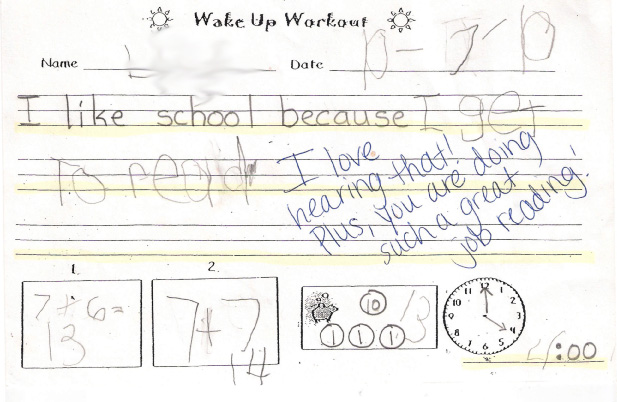 Wake Up Workout
Name Date
I like school because I get
to read
I love
hearing that!
Plus, you are doing
such a great
job reading!
1. 2.
7+6=
13
7+7
14
10 13
1 1 1
11 12 1
10 2
9 3
8 4
7 6 5
:00